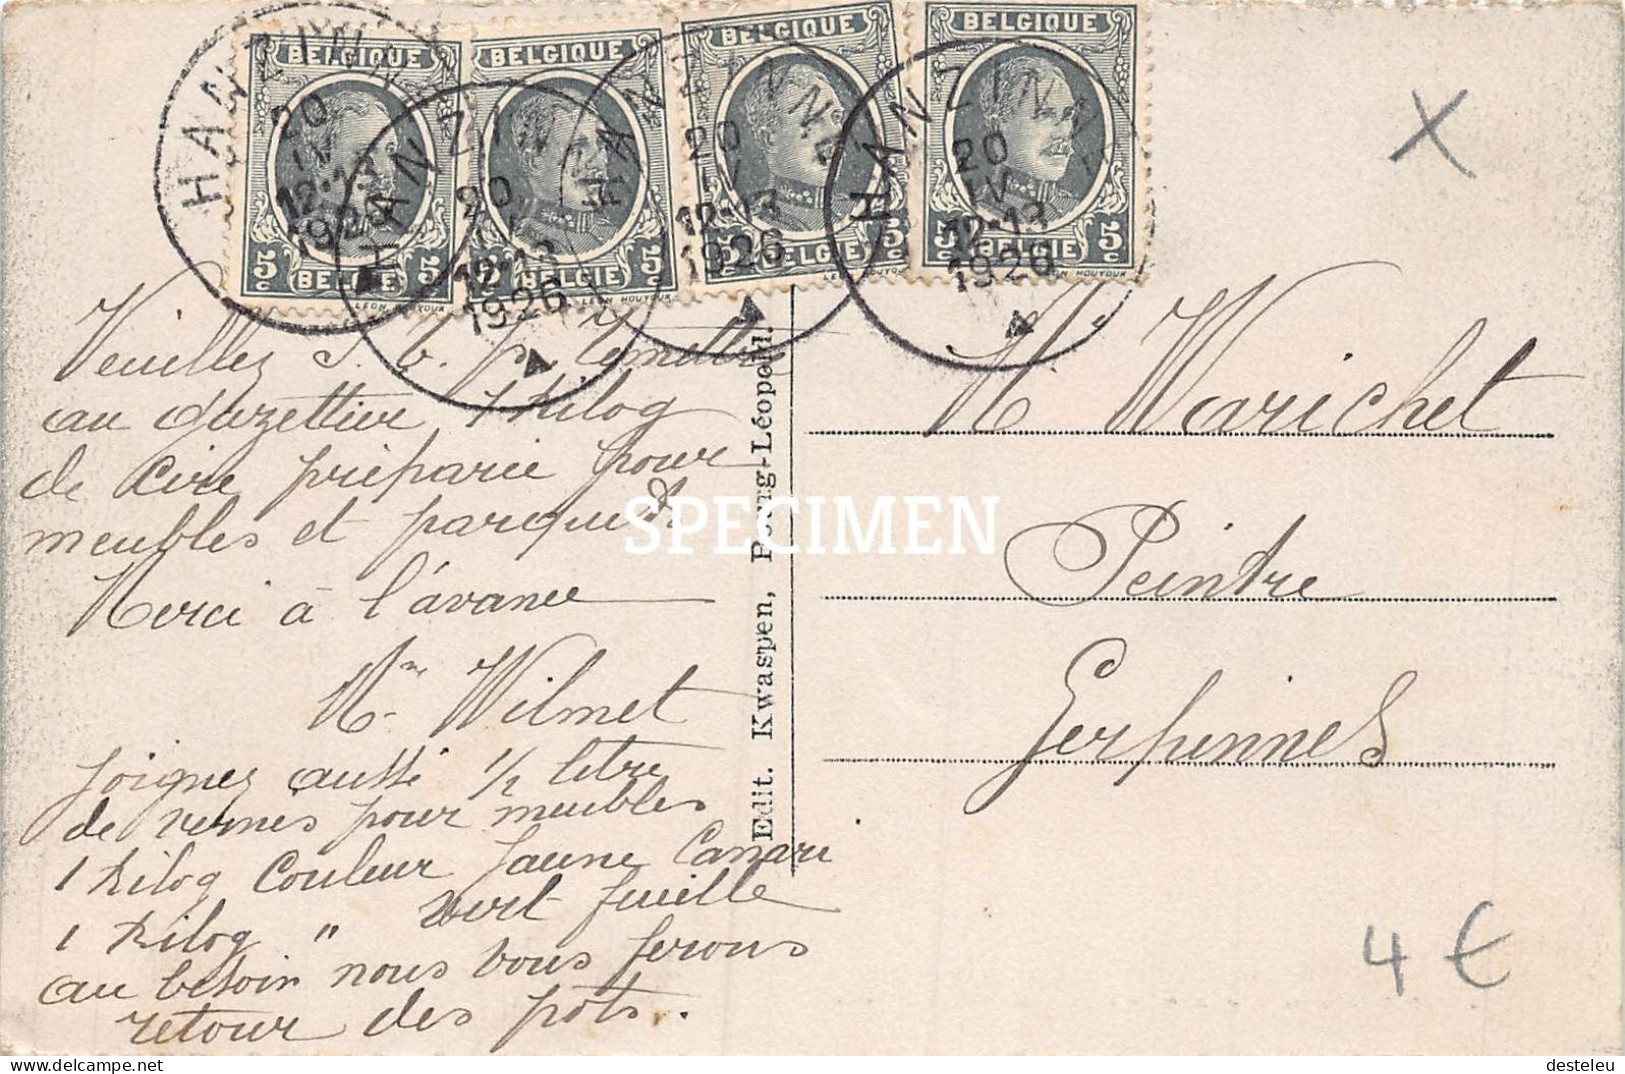 BELGIQUE BELGIQUE BELGIQUE BELGIQUE
HANZINNE HANZINNE HANZINNE HANZINNE
20 20 20 20
IV IV IV IV
12-13 12-13 12-13 12-13
1926 1926 1926 1926
5c BELGIE 5c 5c BELGIE 5c 5c BELGIE 5c 5c BELGIE 5c
LEON HOUYOUX LEON HOUYOUX LEON HOUYOUX LEON HOUYOUX
Veuillez S. V. p. remettre
au gazettier 1 kilog
de cire préparée pour
meubles et parquets
Merci à l'avance
Me Wilmet
Joignez aussi 1/2 litre
de vernis pour meubles
1 kilog Couleur Jaune Canari
1 kilog " vert feuille
au besoin nous vous ferons
retour des pots.
Edit. Kwaspen, Bourg-Léopold.
SPECIMEN
X
Mr Warichet
Peintre
Gerpinnes
4 €
desteleu